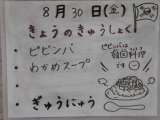 8月30日(金)
きょうのきゅうしょく
ビビンバ
わかめスープ
ぎゅうにゅう
ビビンバは
韓国料理
です